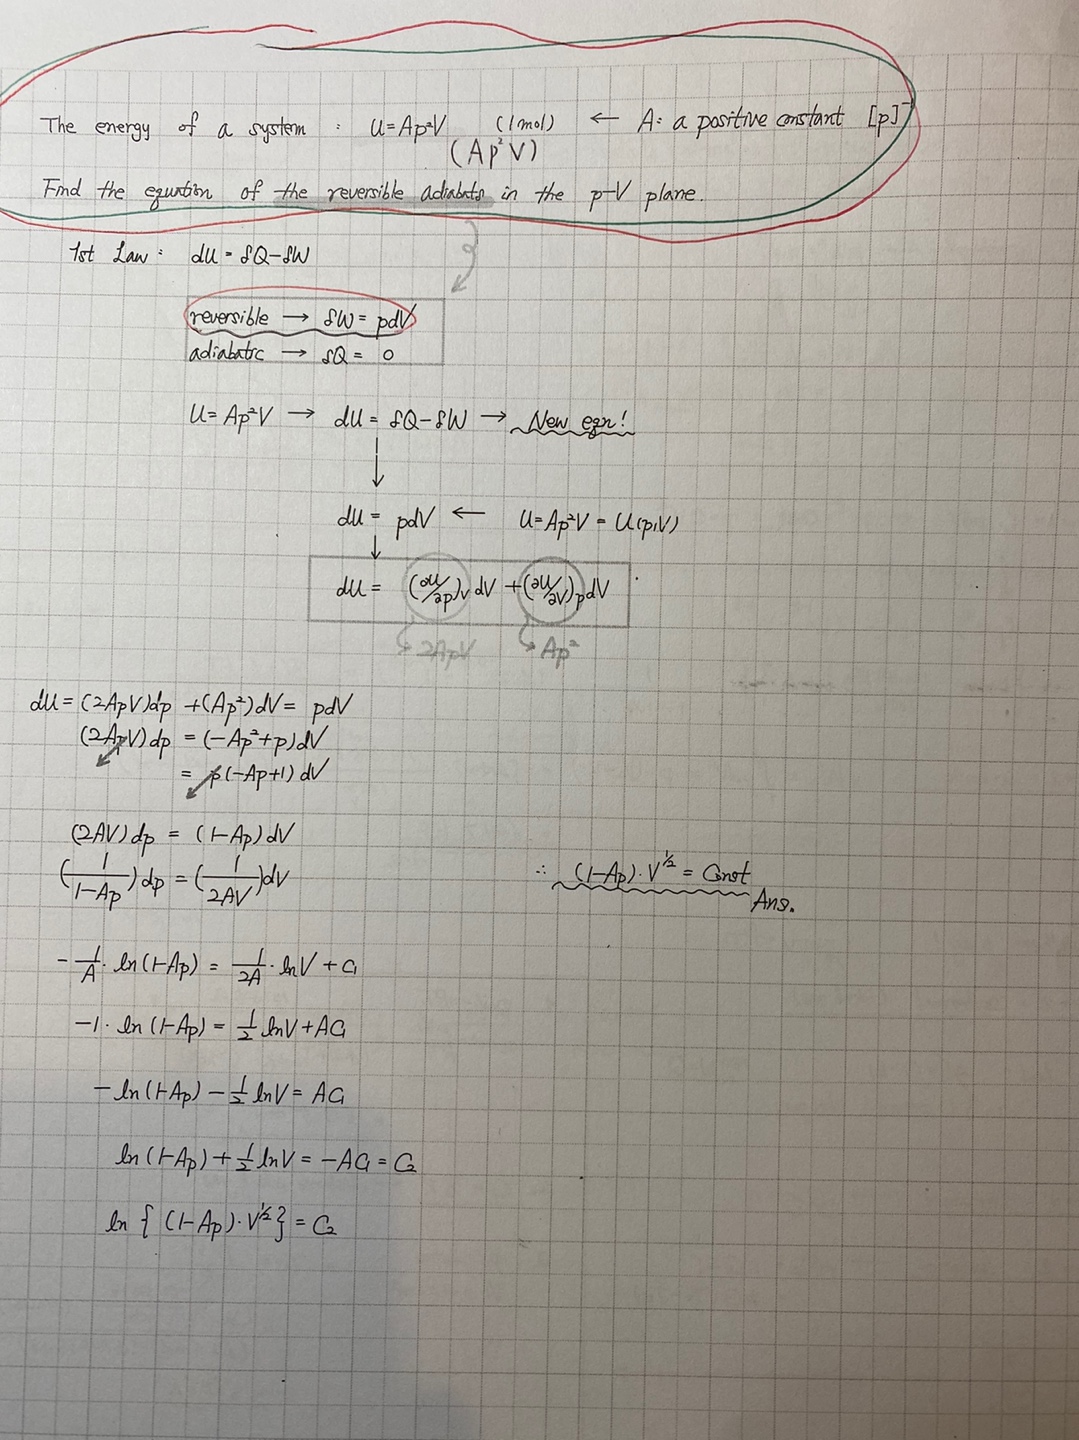 The energy of a system : U=Ap²V (1mol) ← A: a positive constant [p]⁻
(Ap²V)
Find the equation of the reversible adiabats in the p-V plane.
1st Law : dU = δQ-δW
reversible → δW = pdV
adiabatic → δQ = 0
U=Ap²V → dU = δQ-δW → New eqn!
dU = pdV ← U=Ap²V = U(p,V)
dU = (∂U/∂p)v dV + (∂U/∂V)p dV
2ApV Ap²
dU = (2ApV)dp + (Ap²)dV = pdV
(2ApV)dp = (-Ap²+p)dV
= p(-Ap+1) dV
(2AV) dp = (1-Ap) dV
(1/1-Ap) dp = (1/2AV) dV
∴ (1-Ap)·V^½ = Const
Ans.
-1/A · ln(1-Ap) = 1/2A · lnV + C₁
-1 · ln(1-Ap) = 1/2 lnV + AC₁
-ln(1-Ap) - 1/2 lnV = AC₁
ln(1-Ap) + 1/2 lnV = -AC₁ = C₂
ln { (1-Ap)·V^½ } = C₂